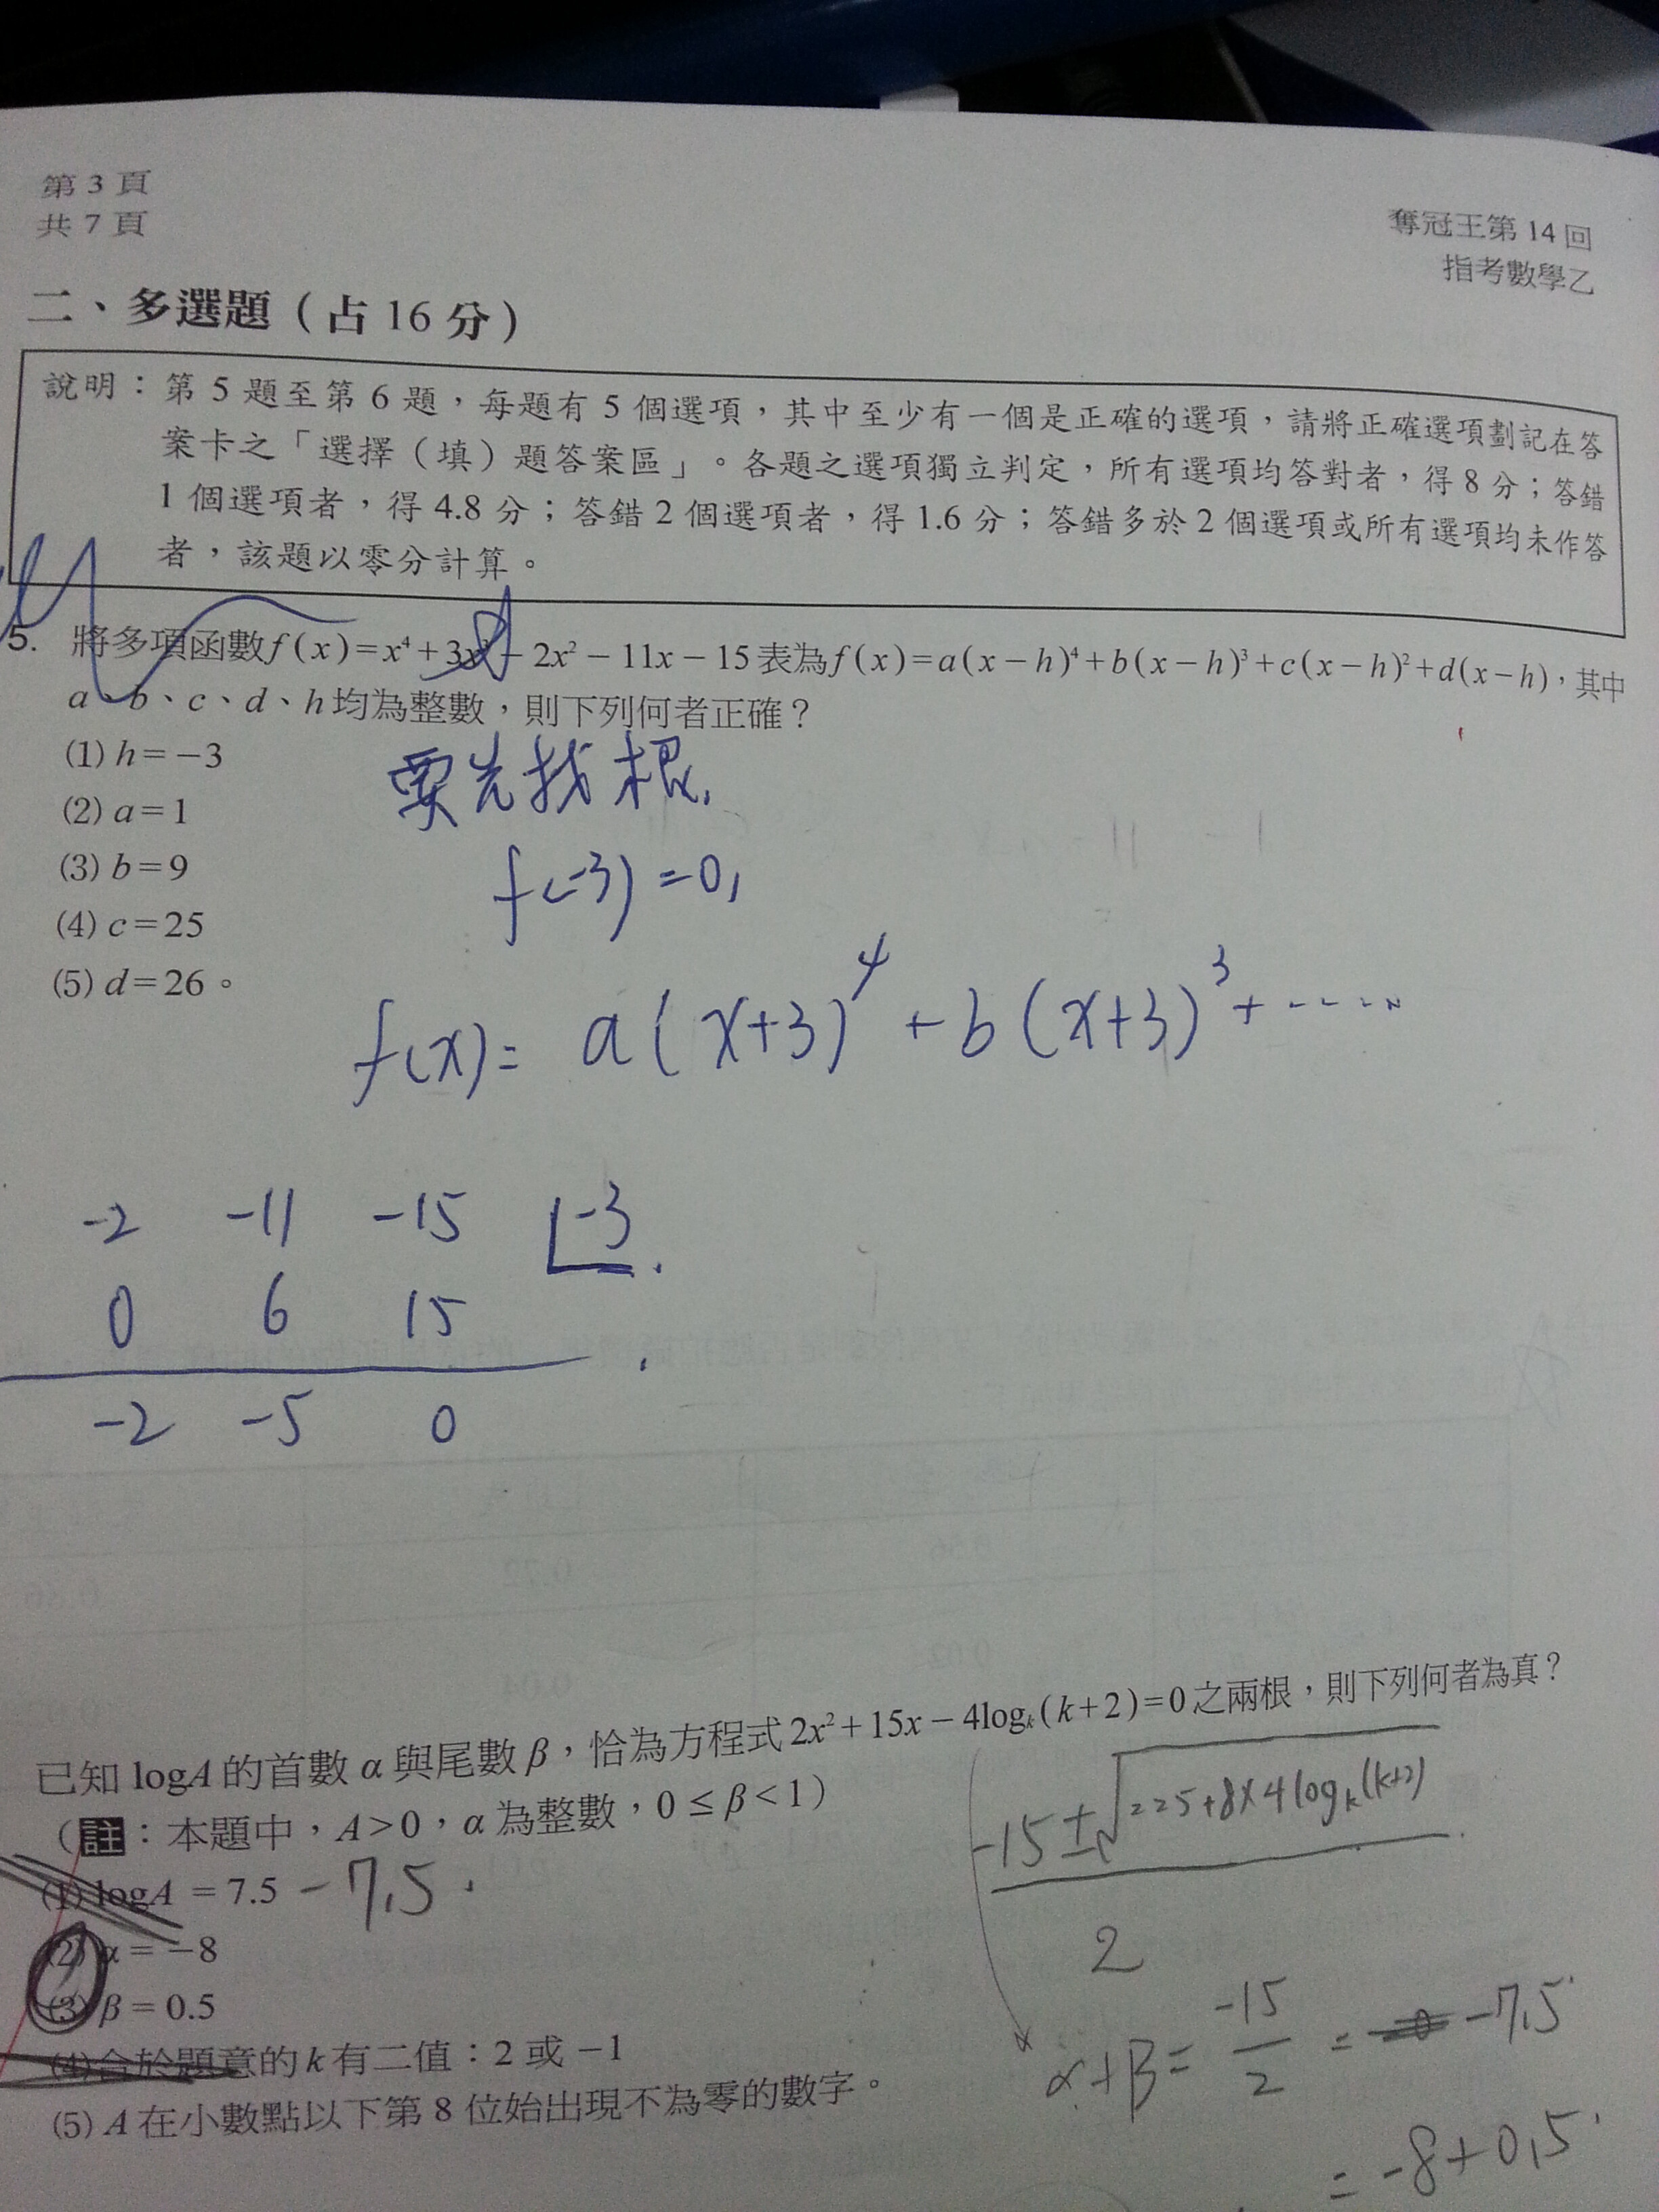 第 3 頁
共 7 頁
奪冠王第 14 回
指考數學乙
二、多選題（占 16 分）
說明：第 5 題至第 6 題，每題有 5 個選項，其中至少有一個是正確的選項，請將正確選項劃記在答
案卡之「選擇（填）題答案區」。各題之選項獨立判定，所有選項均答對者，得 8 分；答錯
1 個選項者，得 4.8 分；答錯 2 個選項者，得 1.6 分；答錯多於 2 個選項或所有選項均未作答
者，該題以零分計算。
5. 將多項函數 f(x)=x⁴+3x³−2x²−11x−15 表為 f(x)=a(x−h)⁴+b(x−h)³+c(x−h)²+d(x−h)，其中
a、b、c、d、h 均為整數，則下列何者正確？
(1) h=−3
(2) a=1
(3) b=9
(4) c=25
(5) d=26。
要先找根.
f(-3)=0,
f(x)= a(x+3)⁴+b(x+3)³+.....
-2 -11 -15 -3
0 6 15
-2 -5 0
已知 logA 的首數 α 與尾數 β，恰為方程式 2x²+15x−4logₖ(k+2)=0 之兩根，則下列何者為真？
（註：本題中，A>0，α 為整數，0≤β<1）
(1) logA =7.5 -7.5
(2) α=−8
(3) β=0.5
(4) 合於題意的 k 有二值：2 或 −1
(5) A 在小數點以下第 8 位始出現不為零的數字。
-15±√225+8×4logₖ(k+2)
2
α+β= -15/2 = -7.5
= -8+0.5